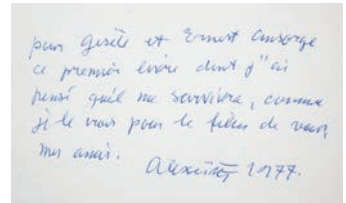 pour Gisèle et Ernest Ansorge
ce premier livre dont j'ai
pensé qu'il me survivra, comme
je le crois pour le film de vous,
mes amis.
Alexeïeff 1977.